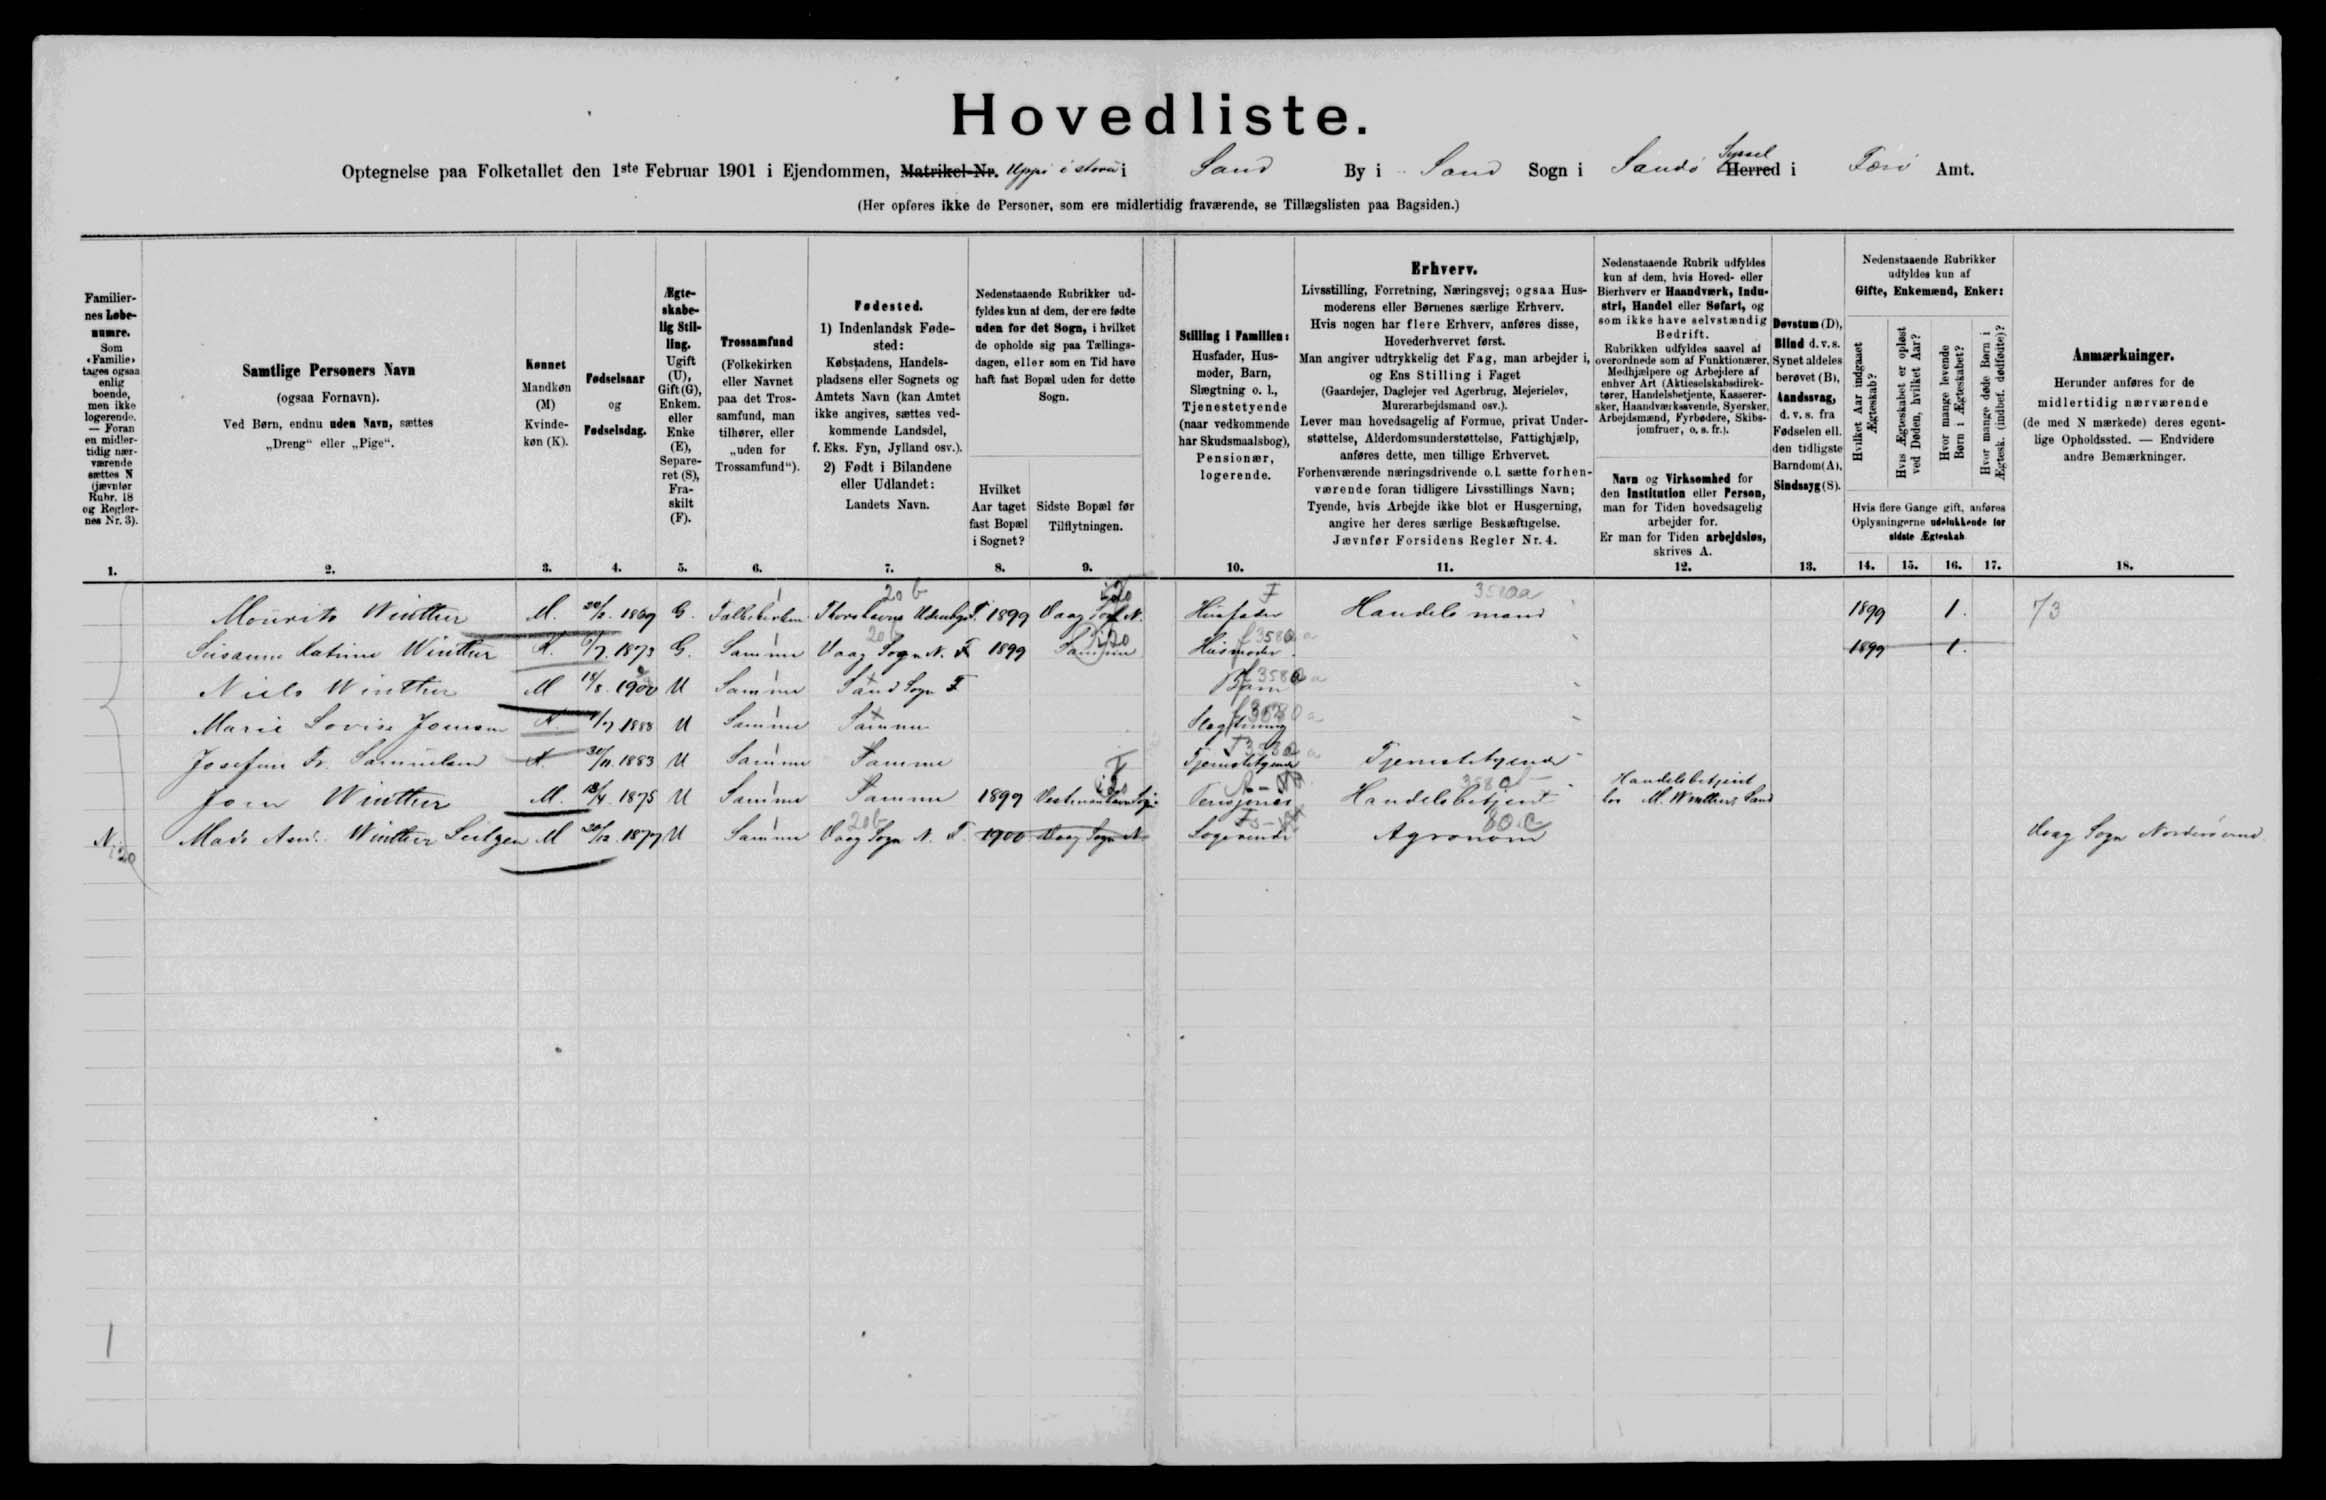 Hovedliste.
Optegnelse paa Folketallet den 1ste Februar 1901 i Ejendommen, Matrikel-Nr. Uppi i stovu i Sand By i Sand Sogn i Sandø Syssel Herred i Færø Amt.
(Her opføres ikke de Personer, som ere midlertidig fraværende, se Tillægslisten paa Bagsiden.)
Familiernes Løbenumre.
Som «Familie» tages ogsaa enlig boende, men ikke logerende. — Foran en midlertidig nærværende sættes N (jævnfør Rubr. 18 og Reglernes Nr. 3).
Samtlige Personers Navn
(ogsaa Fornavn).
Ved Børn, endnu uden Navn, sættes
„Dreng“ eller „Pige“.
Kønnet
Mandkøn (M)
Kvindekøn (K).
Fødselsaar
og
Fødselsdag.
Ægteskabelig Stilling.
Ugift (U), Gift (G), Enkem. eller Enke (E), Separeret (S), Fraskilt (F).
Trossamfund
(Folkekirken eller Navnet paa det Trossamfund, man tilhører, eller „uden for Trossamfund“).
Fødested.
1) Indenlandsk Fødested:
Købstadens, Handelspladsens eller Sognets og Amtets Navn (kan Amtet ikke angives, sættes vedkommende Landsdel, f. Eks. Fyn, Jylland osv.).
2) Født i Bilandene eller Udlandet:
Landets Navn.
Nedenstaaende Rubrikker udfyldes kun af dem, der ere fødte uden for det Sogn, i hvilket de opholde sig paa Tællingsdagen, eller som en Tid have haft fast Bopæl uden for dette Sogn.
Hvilket Aar taget fast Bopæl i Sognet?
Sidste Bopæl før Tilflytningen.
Stilling i Familien:
Husfader, Husmoder, Barn, Slægtning o. l., Tjenestetyende (naar vedkommende har Skudsmaalsbog), Pensionær, logerende.
Erhverv.
Livsstilling, Forretning, Næringsvej; ogsaa Husmoderens eller Børnenes særlige Erhverv.
Hvis nogen har flere Erhverv, anføres disse, Hovederhvervet først.
Man angiver udtrykkelig det Fag, man arbejder i, og Ens Stilling i Faget
(Gaardejer, Daglejer ved Agerbrug, Mejerielev, Murerarbejdsmand osv.).
Lever man hovedsagelig af Formue, privat Understøttelse, Alderdomsunderstøttelse, Fattighjælp, anføres dette, men tillige Erhvervet.
Forhenværende næringsdrivende o. l. sætte forhenværende foran tidligere Livsstillings Navn;
Tyende, hvis Arbejde ikke blot er Husgerning, angive her deres særlige Beskæftigelse.
Jævnfør Forsidens Regler Nr. 4.
Nedenstaaende Rubrik udfyldes kun af dem, hvis Hoved- eller Bierhverv er Haandværk, Industri, Handel eller Søfart, og som ikke have selvstændig Bedrift.
Rubrikken udfyldes saavel af overordnede som af Funktionærer, Medhjælpere og Arbejdere af enhver Art (Aktieselskabsdirektører, Handelsbetjente, Kasserersker, Haandværkssvende, Syersker, Arbejdsmænd, Fyrbødere, Skibsjomfruer, o. s. fr.).
Navn og Virksomhed for den Institution eller Person, man for Tiden hovedsagelig arbejder for.
Er man for Tiden arbejdsløs, skrives A.
Døvstum (D), Blind d. v. s. Synet aldeles berøvet (B), Aandssvag, d. v. s. fra Fødselen ell. den tidligste Barndom (A), Sindssyg (S).
Nedenstaaende Rubrikker udfyldes kun af
Gifte, Enkemænd, Enker:
Hvilket Aar indgaaet Ægteskab?
Hvis Ægteskabet er opløst ved Døden, hvilket Aar?
Hvor mange levende Børn i Ægteskabet?
Hvor mange døde Børn i Ægtesk. (indbef. dødfødte)?
Hvis flere Gange gift, anføres Oplysningerne udelukkende for sidste Ægteskab
Anmærkninger.
Herunder anføres for de midlertidig nærværende (de med N mærkede) deres egentlige Opholdssted. — Endvidere andre Bemærkninger.
1. 2. 3. 4. 5. 6. 7. 8. 9. 10. 11. 12. 13. 14. 15. 16. 17. 18.
Mourits Winther M. 1869 G. Folkekirken Thorshavns Udenbys F. 1899 Vaag Sogn N. Husfader Handelsmand 1899 1. 73
Susanne Katrine Winther K. 1873 G. Samme Vaag Sogn N. F 1899 Samme Husmoder 1899 1.
Niels Winther M 1900 U Samme Sand Sogn F Barn
Marie Lovise Joensen K. 1888 U Samme Samme Slægtning
Josefine Fr. Samuelsen K. 30/11. 1883 U Samme Samme Tjenestetyende Tjenestetyende
Joen Winther M. 1875 U Samme Samme 1899 Vestmanhavn Sogn Pensjonær Handelsbetjent Handelsbetjent hos M. Winther, Sand
N. Mads And. Winther Lützen M 1877 U Samme Vaag Sogn N. F. 1900 Vaag Sogn N. Logerende Agronom Vaag Sogn Norderøerne